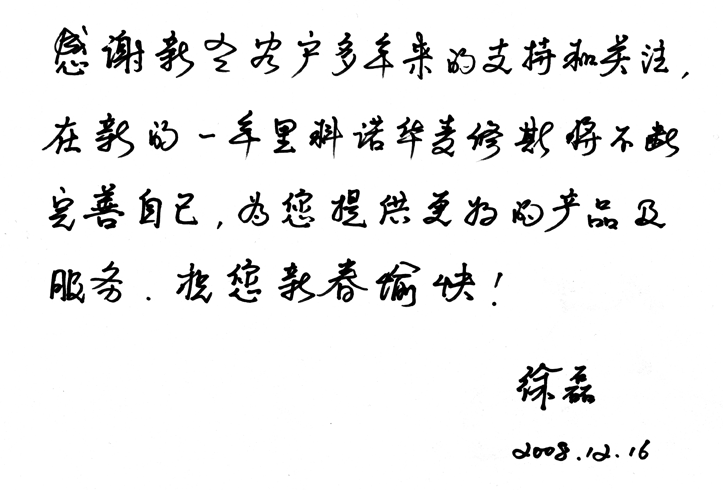 感谢新老客户多年来的支持和关注,
在新的一年里科诺华麦修斯将不断
完善自己,为您提供更好的产品及
服务.祝您新春愉快!
徐磊
2008.12.16